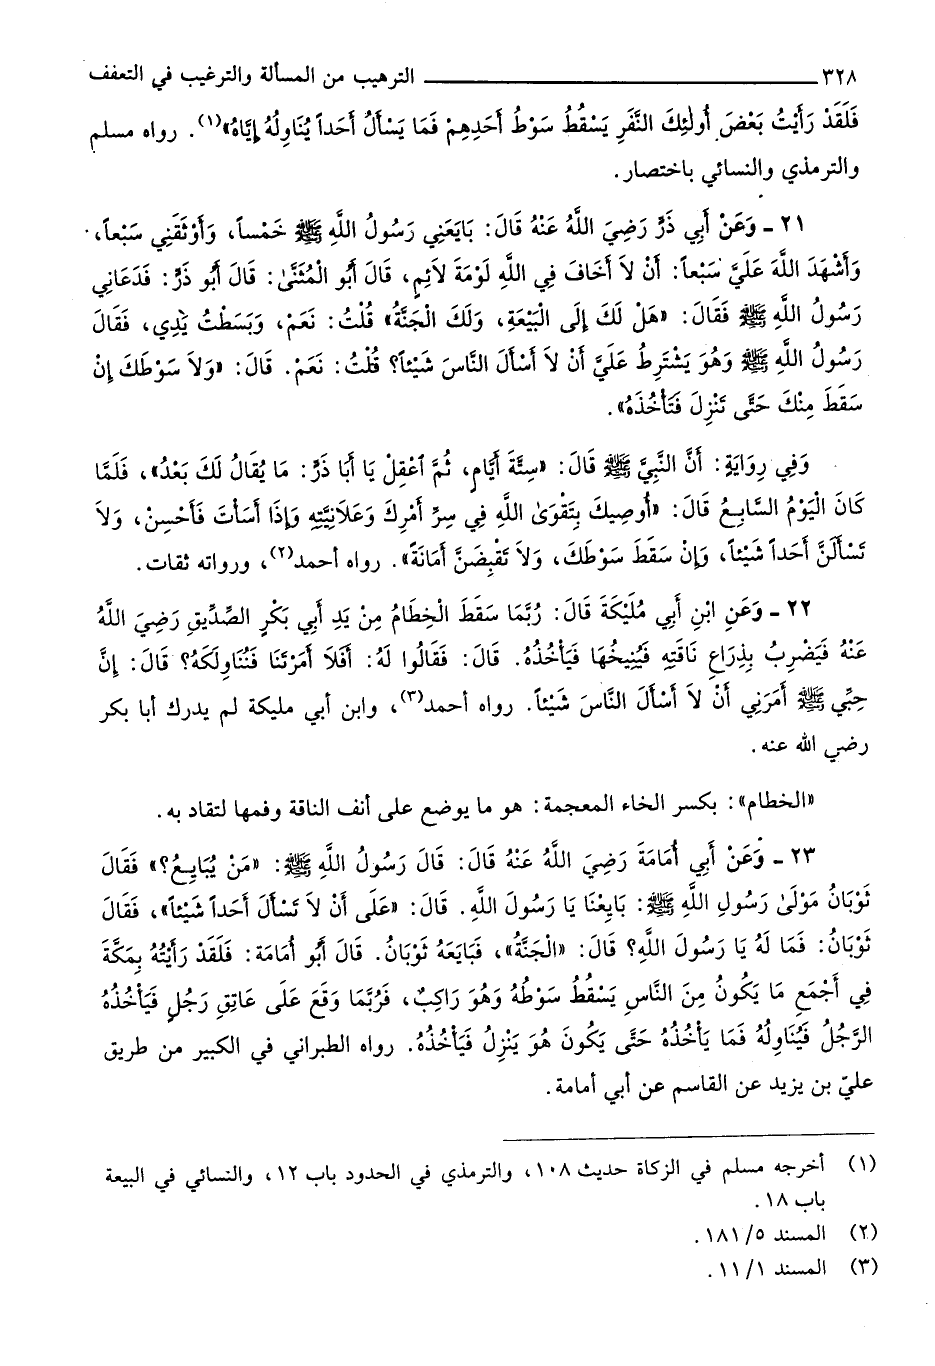 ٣٢٨ ــــــــــــــــــــــــــــــ الترهيب من المسألة والترغيب في التعفف
فَلَقَدْ رَأَيْتُ بَعْضَ أُولٰئِكَ النَّفَرِ يَسْقُطُ سَوْطُ أَحَدِهِمْ فَمَا يَسْأَلُ أَحَداً يُنَاوِلُهُ إِيَّاهُ»(١). رواه مسلم
والترمذي والنسائي باختصار.
٢١ ـ وَعَنْ أَبِي ذَرٍّ رَضِيَ اللَّهُ عَنْهُ قَالَ: بَايَعَنِي رَسُولُ اللَّهِ ﷺ خَمْساً، وَأَوْثَقَنِي سَبْعاً،
وَأَشْهَدَ اللَّهَ عَلَيَّ سَبْعاً: أَنْ لاَ أَخَافَ فِي اللَّهِ لَوْمَةَ لاَئِمٍ، قَالَ أَبُو الْمُثَنَّى: قَالَ أَبُو ذَرٍّ: فَدَعَانِي
رَسُولُ اللَّهِ ﷺ فَقَالَ: «هَلْ لَكَ إِلَى الْبَيْعَةِ، وَلَكَ الْجَنَّةُ» قُلْتُ: نَعَمْ، وَبَسَطْتُ يَدِي، فَقَالَ
رَسُولُ اللَّهِ ﷺ وَهُوَ يَشْتَرِطُ عَلَيَّ أَنْ لاَ أَسْأَلَ النَّاسَ شَيْئاً؟ قُلْتُ: نَعَمْ. قَالَ: «وَلاَ سَوْطَكَ إِنْ
سَقَطَ مِنْكَ حَتَّى تَنْزِلَ فَتَأْخُذَهُ».
وَفِي رِوَايَةٍ: أَنَّ النَّبِيَّ ﷺ قَالَ: «سِتَّةَ أَيَّامٍ، ثُمَّ اعْقِلْ يَا أَبَا ذَرٍّ: مَا يُقَالُ لَكَ بَعْدُ»، فَلَمَّا
كَانَ الْيَوْمُ السَّابِعُ قَالَ: «أُوصِيكَ بِتَقْوَى اللَّهِ فِي سِرِّ أَمْرِكَ وَعَلاَنِيَّتِهِ وَإِذَا أَسَأْتَ فَأَحْسِنْ، وَلاَ
تَسْأَلَنَّ أَحَداً شَيْئاً، وَإِنْ سَقَطَ سَوْطُكَ، وَلاَ تَقْبِضَنَّ أَمَانَةً». رواه أحمد(٢)، ورواته ثقات.
٢٢ ـ وَعَنِ ابْنِ أَبِي مُلَيْكَةَ قَالَ: رُبَّمَا سَقَطَ الْخِطَامُ مِنْ يَدِ أَبِي بَكْرٍ الصِّدِّيقِ رَضِيَ اللَّهُ
عَنْهُ فَيَضْرِبُ بِذِرَاعِ نَاقَتِهِ فَيُنِيخُهَا فَيَأْخُذُهُ. قَالَ: فَقَالُوا لَهُ: أَفَلاَ أَمَرْتَنَا فَنُنَاوِلَكَهُ؟ قَالَ: إِنَّ
حِبِّي ﷺ أَمَرَنِي أَنْ لاَ أَسْأَلَ النَّاسَ شَيْئاً. رواه أحمد(٣)، وابن أبي مليكة لم يدرك أبا بكر
رضي الله عنه.
«الخطام»: بكسر الخاء المعجمة: هو ما يوضع على أنف الناقة وفمها لتقاد به.
٢٣ ـ وَعَنْ أَبِي أُمَامَةَ رَضِيَ اللَّهُ عَنْهُ قَالَ: قَالَ رَسُولُ اللَّهِ ﷺ: «مَنْ يُبَايِعُ؟» فَقَالَ
ثَوْبَانُ مَوْلَى رَسُولِ اللَّهِ ﷺ: بَايِعْنَا يَا رَسُولَ اللَّهِ. قَالَ: «عَلَى أَنْ لاَ تَسْأَلَ أَحَداً شَيْئاً»، فَقَالَ
ثَوْبَانُ: فَمَا لَهُ يَا رَسُولَ اللَّهِ؟ قَالَ: «الْجَنَّةُ»، فَبَايَعَهُ ثَوْبَانُ. قَالَ أَبُو أُمَامَةَ: فَلَقَدْ رَأَيْتُهُ بِمَكَّةَ
فِي أَجْمَعِ مَا يَكُونُ مِنَ النَّاسِ يَسْقُطُ سَوْطُهُ وَهُوَ رَاكِبٌ، فَرُبَّمَا وَقَعَ عَلَى عَاتِقِ رَجُلٍ فَيَأْخُذُهُ
الرَّجُلُ فَيُنَاوِلُهُ فَمَا يَأْخُذُهُ حَتَّى يَكُونَ هُوَ يَنْزِلُ فَيَأْخُذُهُ. رواه الطبراني في الكبير من طريق
عليّ بن يزيد عن القاسم عن أبي أمامة.
(١) أخرجه مسلم في الزكاة حديث ١٠٨، والترمذي في الحدود باب ١٢، والنسائي في البيعة
باب ١٨.
(٢) المسند ٥/ ١٨١.
(٣) المسند ١/ ١١.